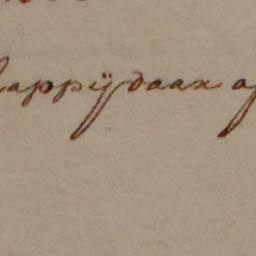 appij daar op